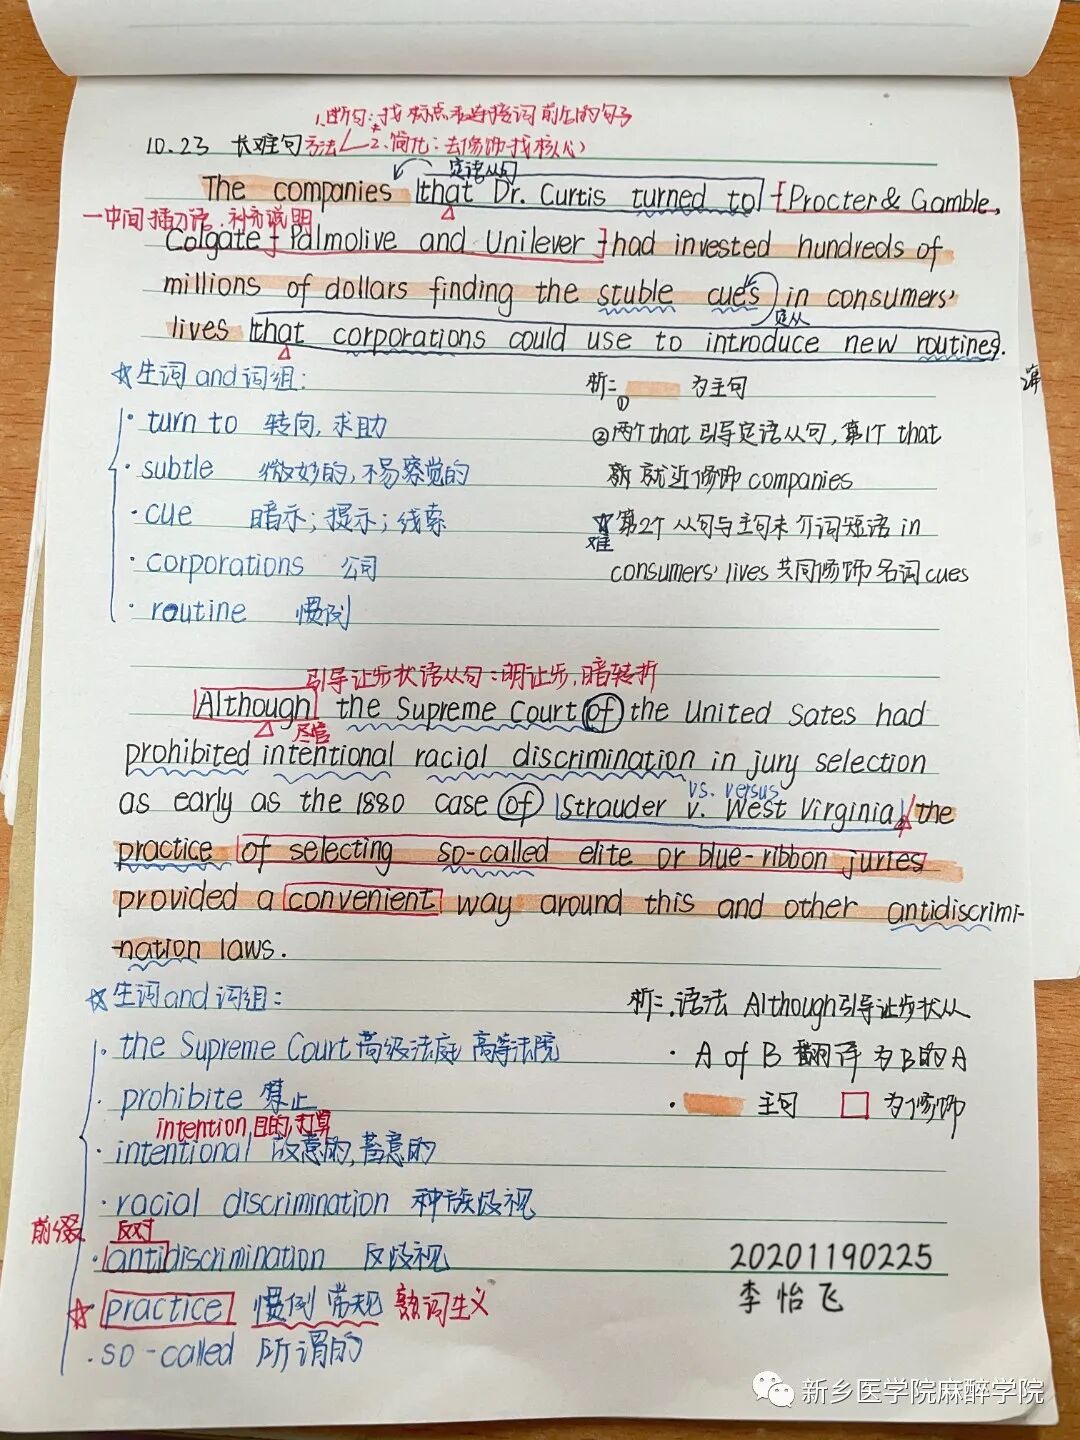 1.断句:找标点和连接词前后的句子
10.23 长难句方法 2.简化:去修饰找核心
定语从句
The companies that Dr. Curtis turned to - Procter & Gamble,
一中间插入语.补充说明
Colgate - Palmolive and Unilever - had invested hundreds of
millions of dollars finding the stuble cues in consumers'
定从
lives that corporations could use to introduce new routines.
☆生词and词组:
· turn to 转向,求助
· subtle 微妙的,不易察觉的
· cue 暗示;提示;线索
· corporations 公司
· routine 惯例
析: ① 为主句
②两个that引导定语从句,第1个that
就近修饰companies
☆难 第2个从句与主句末介词短语in
consumers' lives共同修饰名词cues
引导让步状语从句:明让步,暗转折
Although the Supreme Court of the United Sates had
尽管
prohibited intentional racial discrimination in jury selection
vs. versus
as early as the 1880 case of Strauder v. West Virginia, the
practice of selecting so-called elite or blue-ribbon juries
provided a convenient way around this and other antidiscrimi-
-nation laws.
☆生词and词组:
· the Supreme Court 高级法庭 高等法院
· prohibite 禁止
intention 目的,打算
· intentional 故意的,蓄意的
· racial discrimination 种族歧视
前缀 反对
· antidiscrimination 反歧视
☆ practice 惯例 常规 熟词生义
· so-called 所谓的
析: · 语法 Although引导让步状从
· A of B 翻译为B的A
· 主句 □ 为修饰
20201190225
李怡飞
新乡医学院麻醉学院